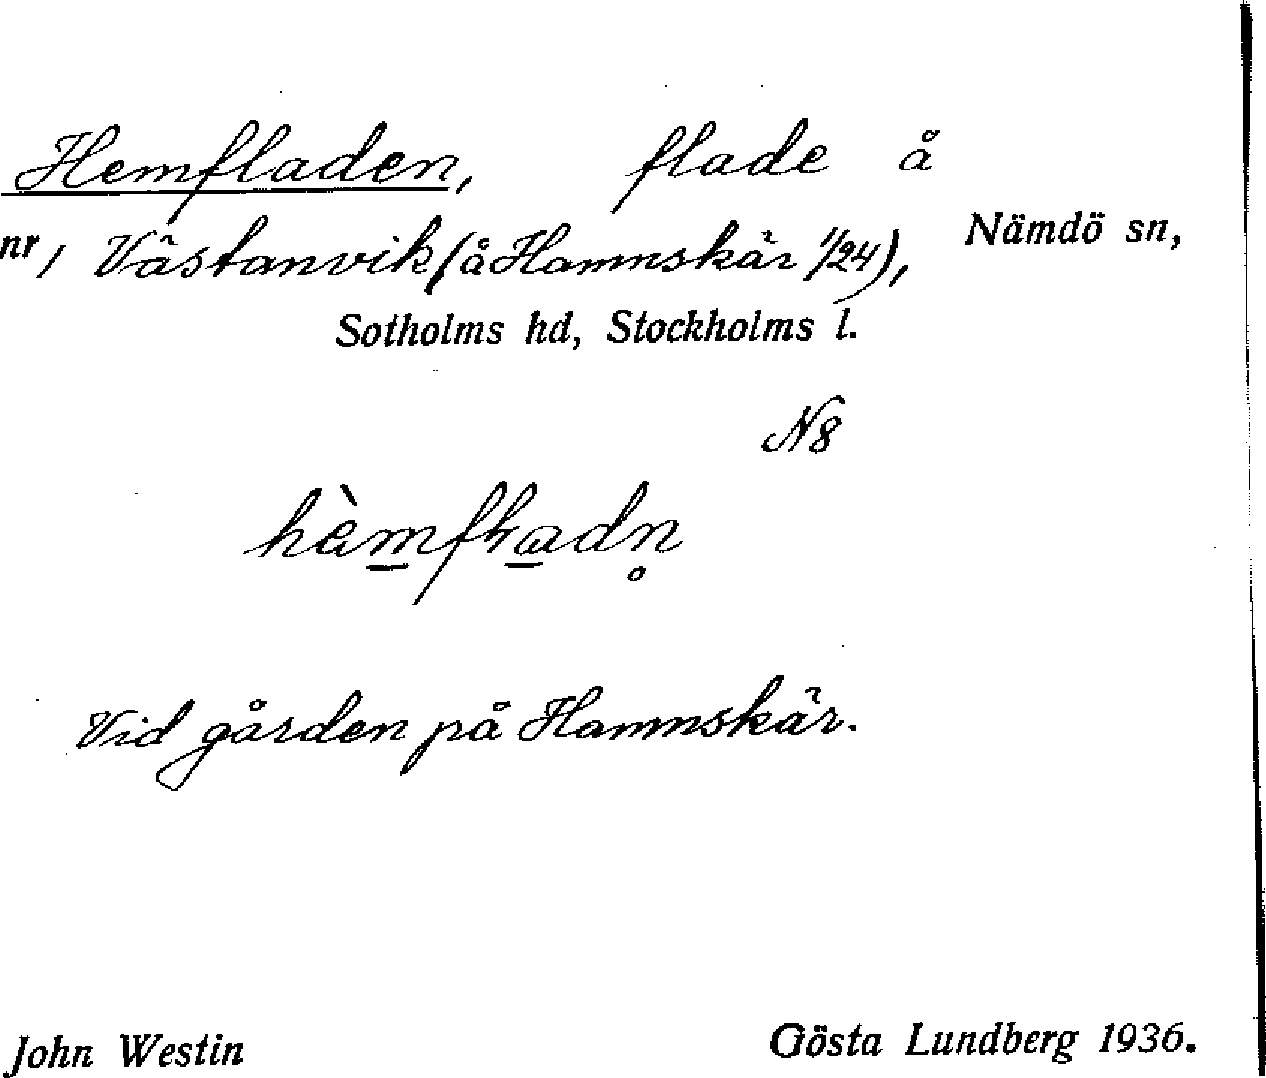 Hemfladen, flade å
nr, Västanvik (å Hamnskär 1/24), Nämdö sn,
Sotholms hd, Stockholms l.
N8
Vid gården på Hamnskär.
John Westin Gösta Lundberg 1936.